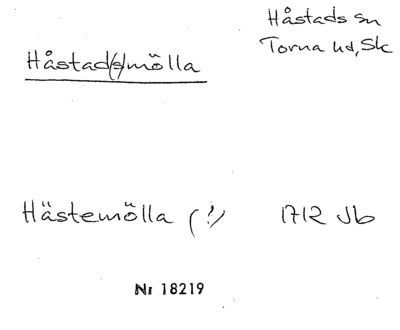 Håstads sn
Torna hd, Sk
Håstad(s)mölla
Hästemölla (!) 1712 Jb
Nr 18219